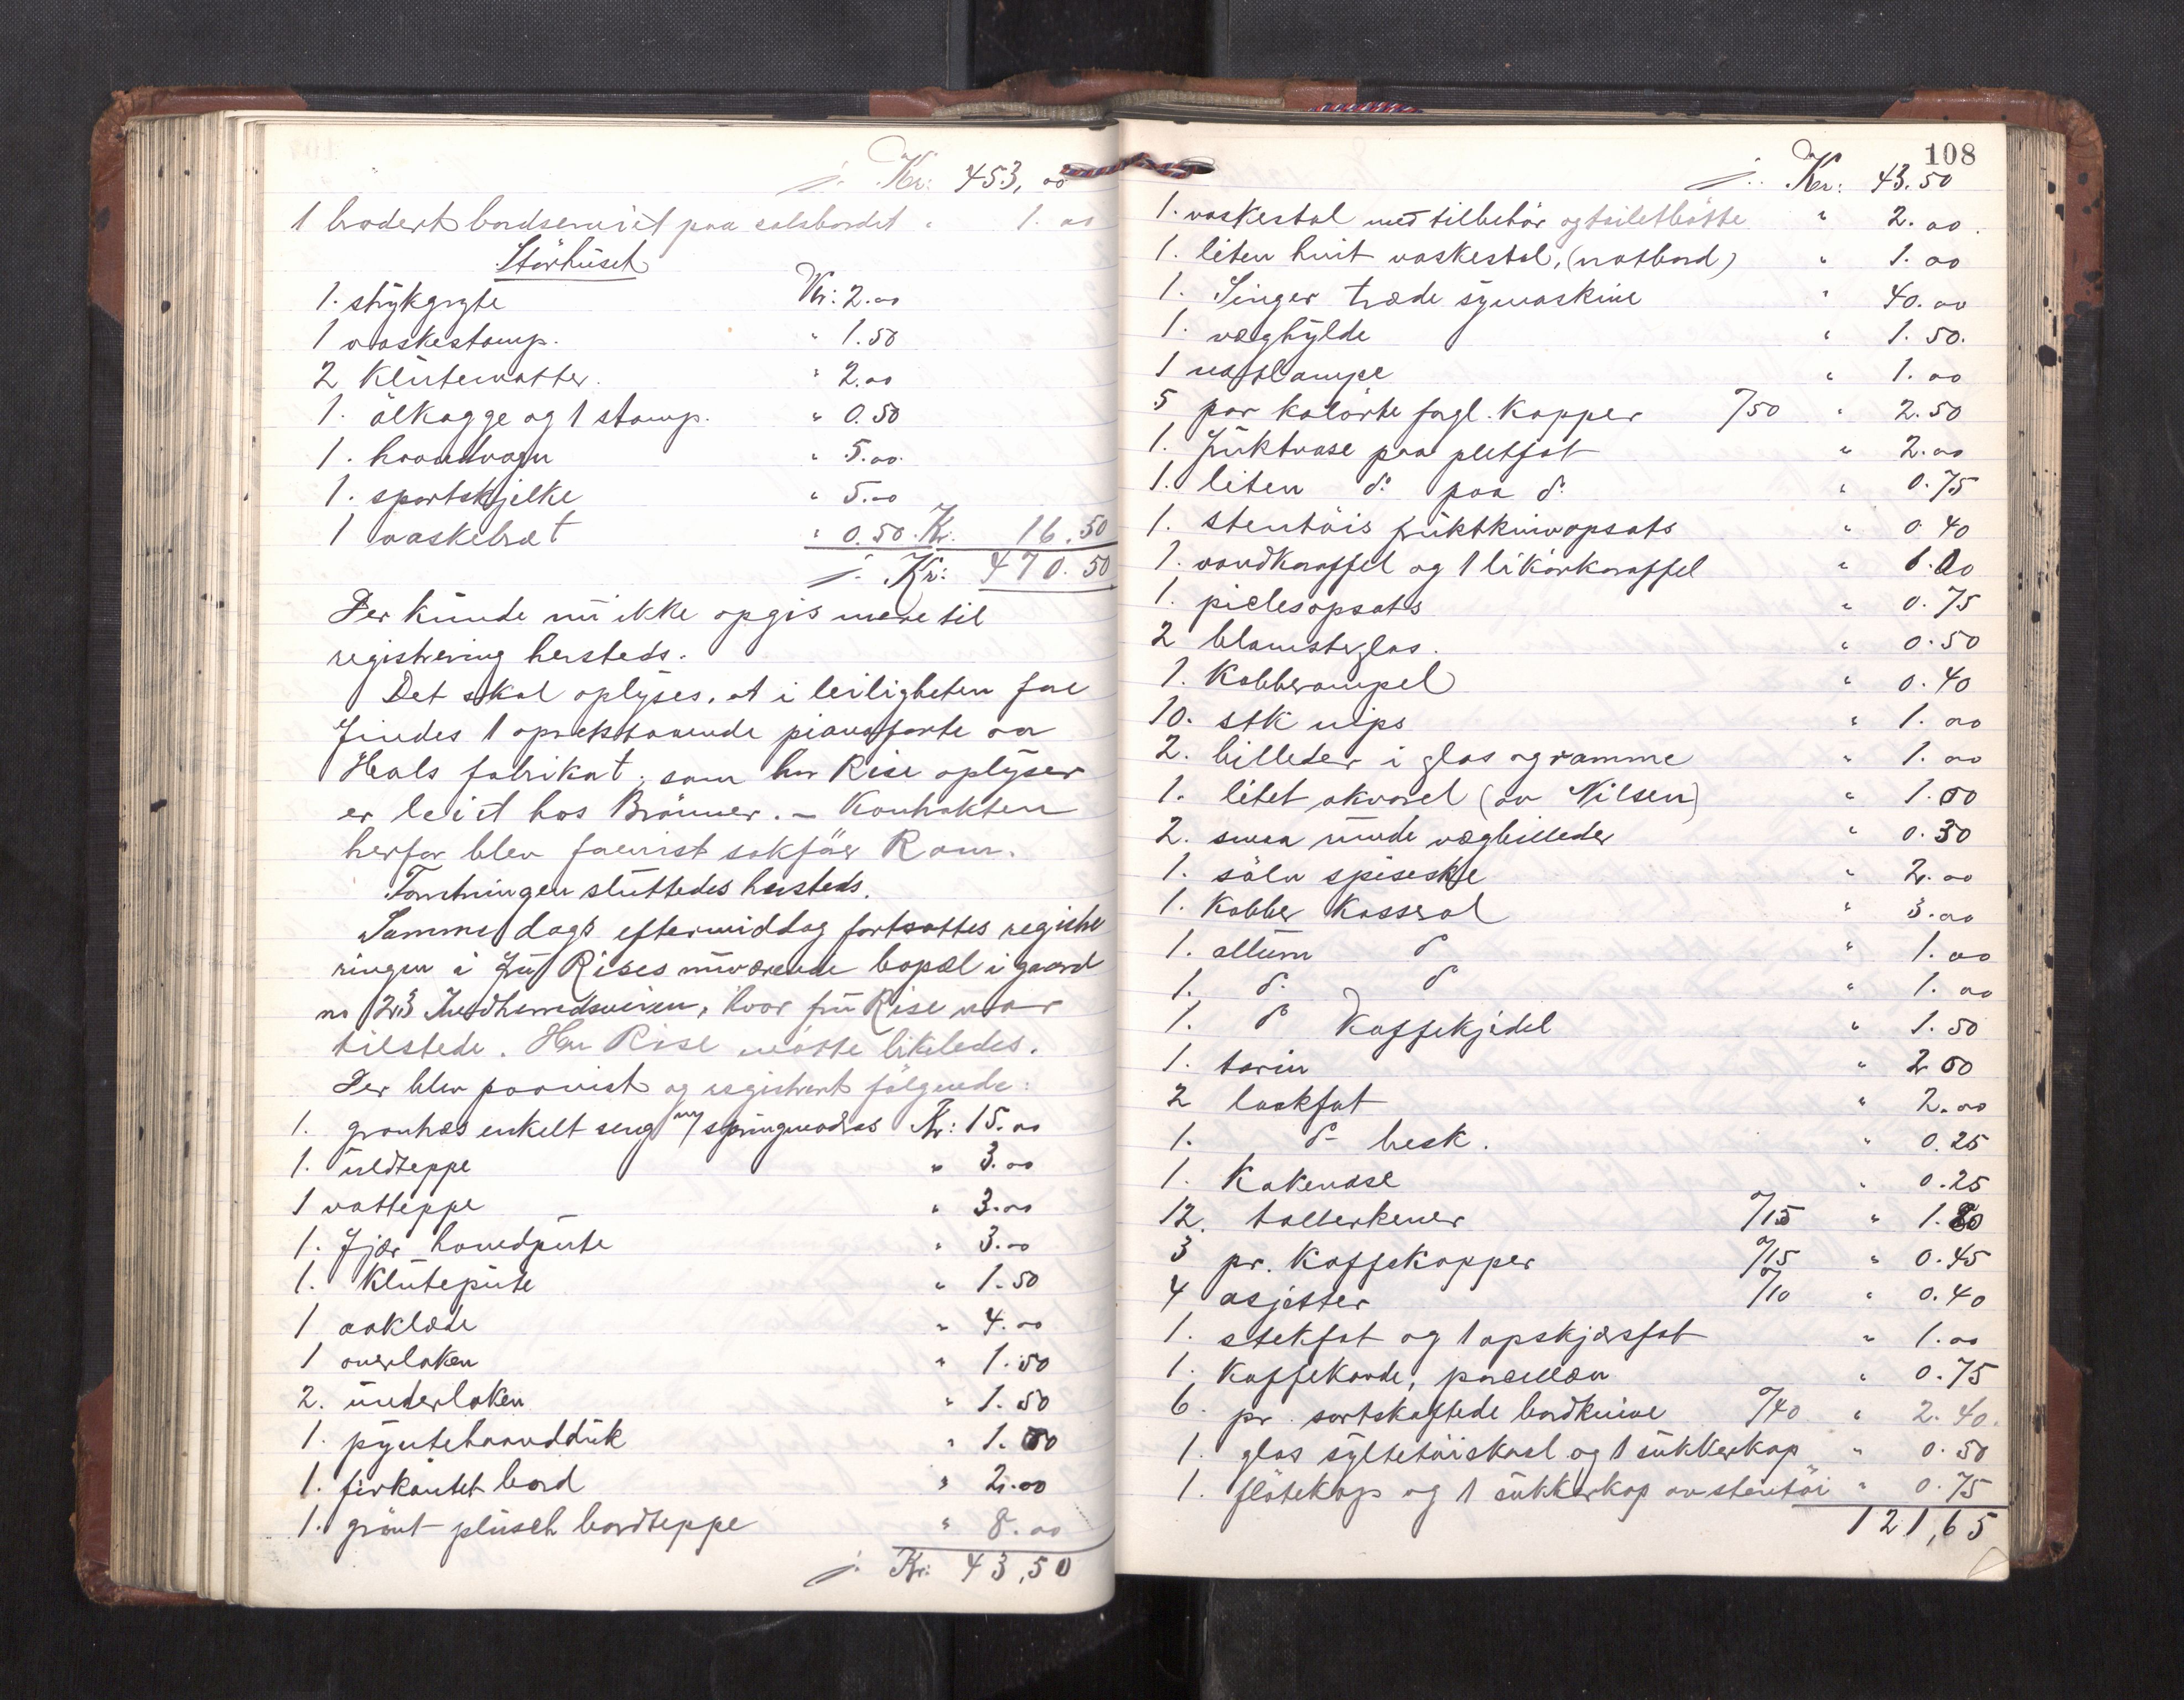 ./. Kr: 453,00
1 brodert bordservict paa salsbordet " 1.00
Störhuset
1. strykgryte Kr: 2.00
1 vaskestamp. " 1.50
2 Klutematter. " 2.00
1. ölkagge og 1 stamp. " 0.50
1. haandvogn " 5.00
1. sportskjelke " 5.00
1 vaskebræt " 0.50. Kr. 16.50
./. Kr: 470.50
Der kunde nu ikke opgis mere til
registrering hersteds.
Det skal oplyses, at i leiligheten fore
findes 1 opretstaaende pianoforte av
Hals fabrikat, som hr Rise oplyser
er leiet hos Brönner. – Kontrakten
herfor blev forevist sakfører Ram.
Forretningen sluttedes hersteds.
Samme dags eftermiddag fortsattes registre
ringen i fru Rises nuværende bopæl i gaard
no 23 Indherredsveien, hvor fru Rise var
tilstede. Herr Rise mötte likeledes.
Der blev paavist og registrert fölgende:
1. granhæs enkelt seng m/ springmadras Kr: 15.00
1. uldteppe " 3.00
1 vatteppe " 3.00
1. fjær hovedpute " 3.00
1. Klutepute " 1.50
1 aaklæde " 4.00
1 overlaken " 1.50
2. underlaken " 1.50
1. pyntehaandduk " 1.00
1. firkantet bord " 2.00
1. grönt plüsch bordteppe " 8.00
./. Kr: 43,50
108
./. Kr: 43.50
1. vaskestol med tilbehör og toiletbötte " 2.00.
1. liten hvit vaskestol, (natbord) " 1.00
1. Singer træde symaskine " 40.00
1. væghylde " 1.50.
1 natlampe " 1.00
5 par kolörte fugl. Kopper a/50 " 2.50
1. fruktvase paa pletfat " 2.00
1. liten do paa do " 0.75
1. stentöis fruktknivopsats " 0.40
1. vandkaraffel og 1 likörkaraffel " 1.00
1. piclesopsats " 0.75
2 blomsterglas. " 0.50
1. Kobberampel " 0.40
10. stk nips " 1.00
2. billeder i glas og ramme " 1.00
1. litet akvarel (av Nilsen) " 1.00
2. smaa runde vægbilleder " 0.30
1. sölv spiseskje " 2.00
1. Kobber Kasserol " 3.00
1. allum do " 1.00
1. do do " 1.00
1. do Kaffekjedel " 1.50
1. terrin " 2.00
2 laakfat " 2.00
1. do besk. " 0.25
1. Kakevase " 0.25
12. tallerkener a/15 " 1.80
3 pr. Kaffekopper a/15 " 0.45
4 asjetter a/10 " 0.40
1. stekfat og 1 opskjærsfat " 1.00
1. Kaffekande, porcellæn " 0.75
6. pr. sortskaftede bordknive a/40 " 2.40.
1. glas syltetöiskaal og 1 sukkerkop " 0.50
1. flötekop og 1 sukkerkop av stentöi " 0.75
121,65